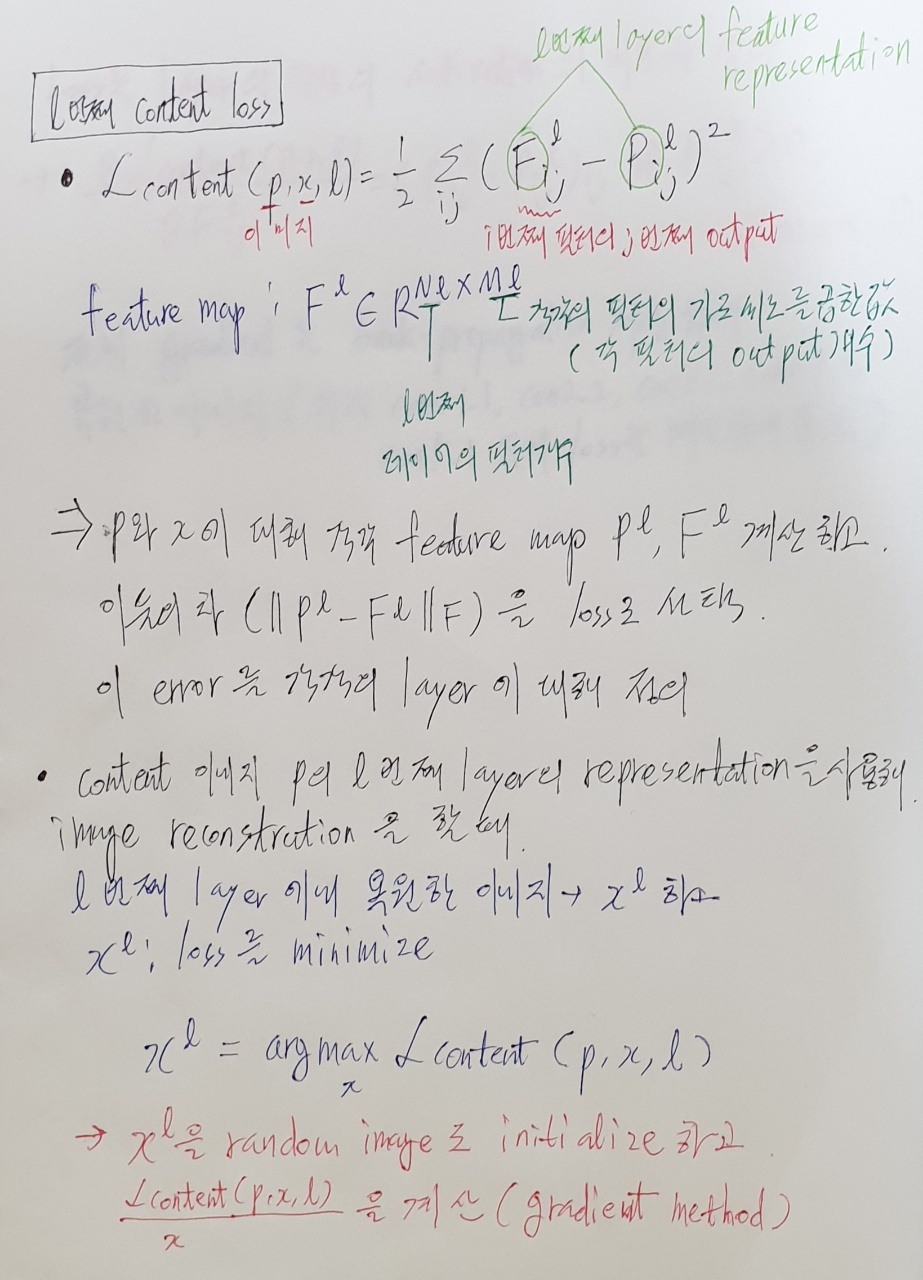 l번째 layer의 feature
representation
l번째 content loss
• L content (p, x, l) = 1/2 Σ ij (F ij^l - P ij^l)^2
이미지
i번째 필터의 j번째 output
feature map : F^l ∈ R^Nl×Ml 각각의 필터의 가로 세로를 곱한 값
(각 필터의 output 개수)
l번째
레이어의 필터개수
⇒ p와 x에 대해 각각 feature map P^l, F^l 계산하고.
이 둘의 차 (||P^l - F^l||F)을 loss로 선택.
이 error를 각각의 layer에 대해 정의
• content 이미지 p의 l번째 layer의 representation을 사용해
image reconstration을 할 때.
l번째 layer에서 복원한 이미지 → x^l 하고
x^l : loss를 minimize
x^l = argmax x L content (p, x, l)
→ x^l을 random image로 initialize 하고
L content (p, x, l) / x 을 계산 (gradient method)